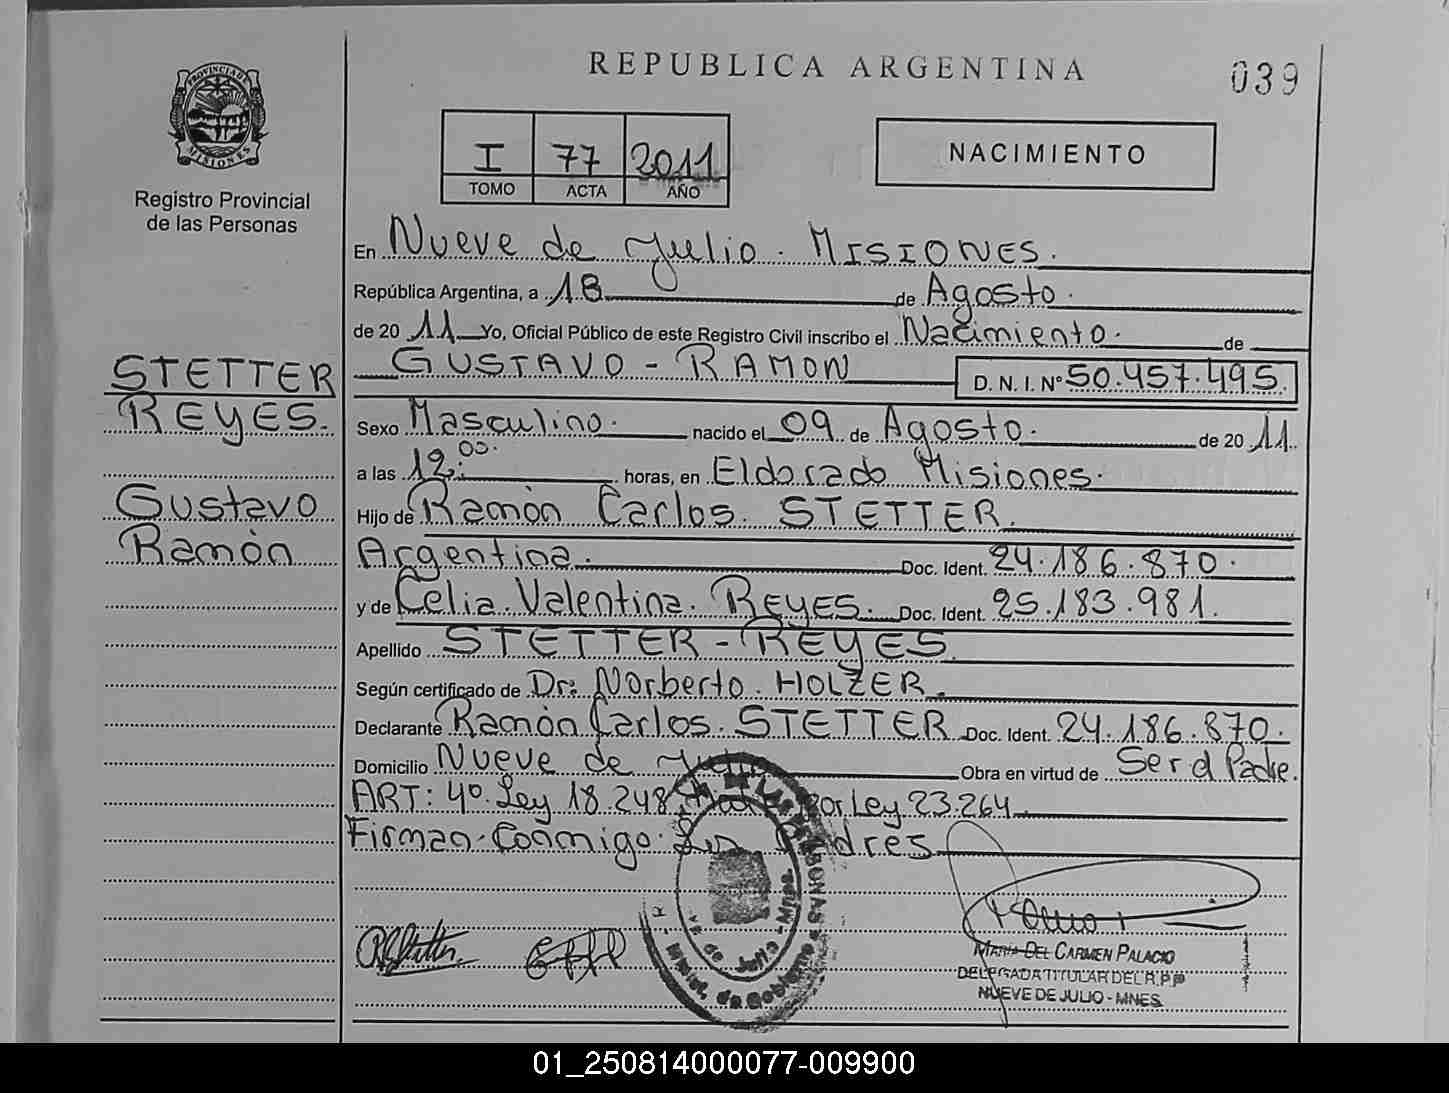 REPUBLICA ARGENTINA
039
PROVINCIA DE
MISIONES
Registro Provincial
de las Personas
I 77 2011
TOMO ACTA AÑO
NACIMIENTO
En Nueve de Julio. MISIONES.
República Argentina, a 18 de Agosto.
de 20 11 Yo, Oficial Público de este Registro Civil inscribo el Nacimiento. de
GUSTAVO - RAMON D. N. I. N° 50.457.495.
STETTER
REYES.
Gustavo
Ramón
Sexo Masculino. nacido el 09 de Agosto. de 20 11.
a las 12:00. horas, en Eldorado Misiones.
Hijo de Ramón Carlos. STETTER.
Argentina. Doc. Ident. 24.186.870.
y de Celia. Valentina. REYES. Doc. Ident. 25.183.981.
Apellido STETTER - REYES.
Según certificado de Dr: Norberto. HOLZER.
Declarante Ramón Carlos. STETTER Doc. Ident. 24.186.870.
Domicilio Nueve de Julio Obra en virtud de Ser el Padre.
ART: 4º. Ley 18.248 por Ley 23.264.
Firman. Conmigo. Los Padres
DE LAS PERSONAS
de Julio - Mnes.
Minist. de Gobierno
MARIA DEL CARMEN PALACIO
DELEGADA TITULAR DEL R.P.P
NUEVE DE JULIO - MNES.
01_250814000077-009900